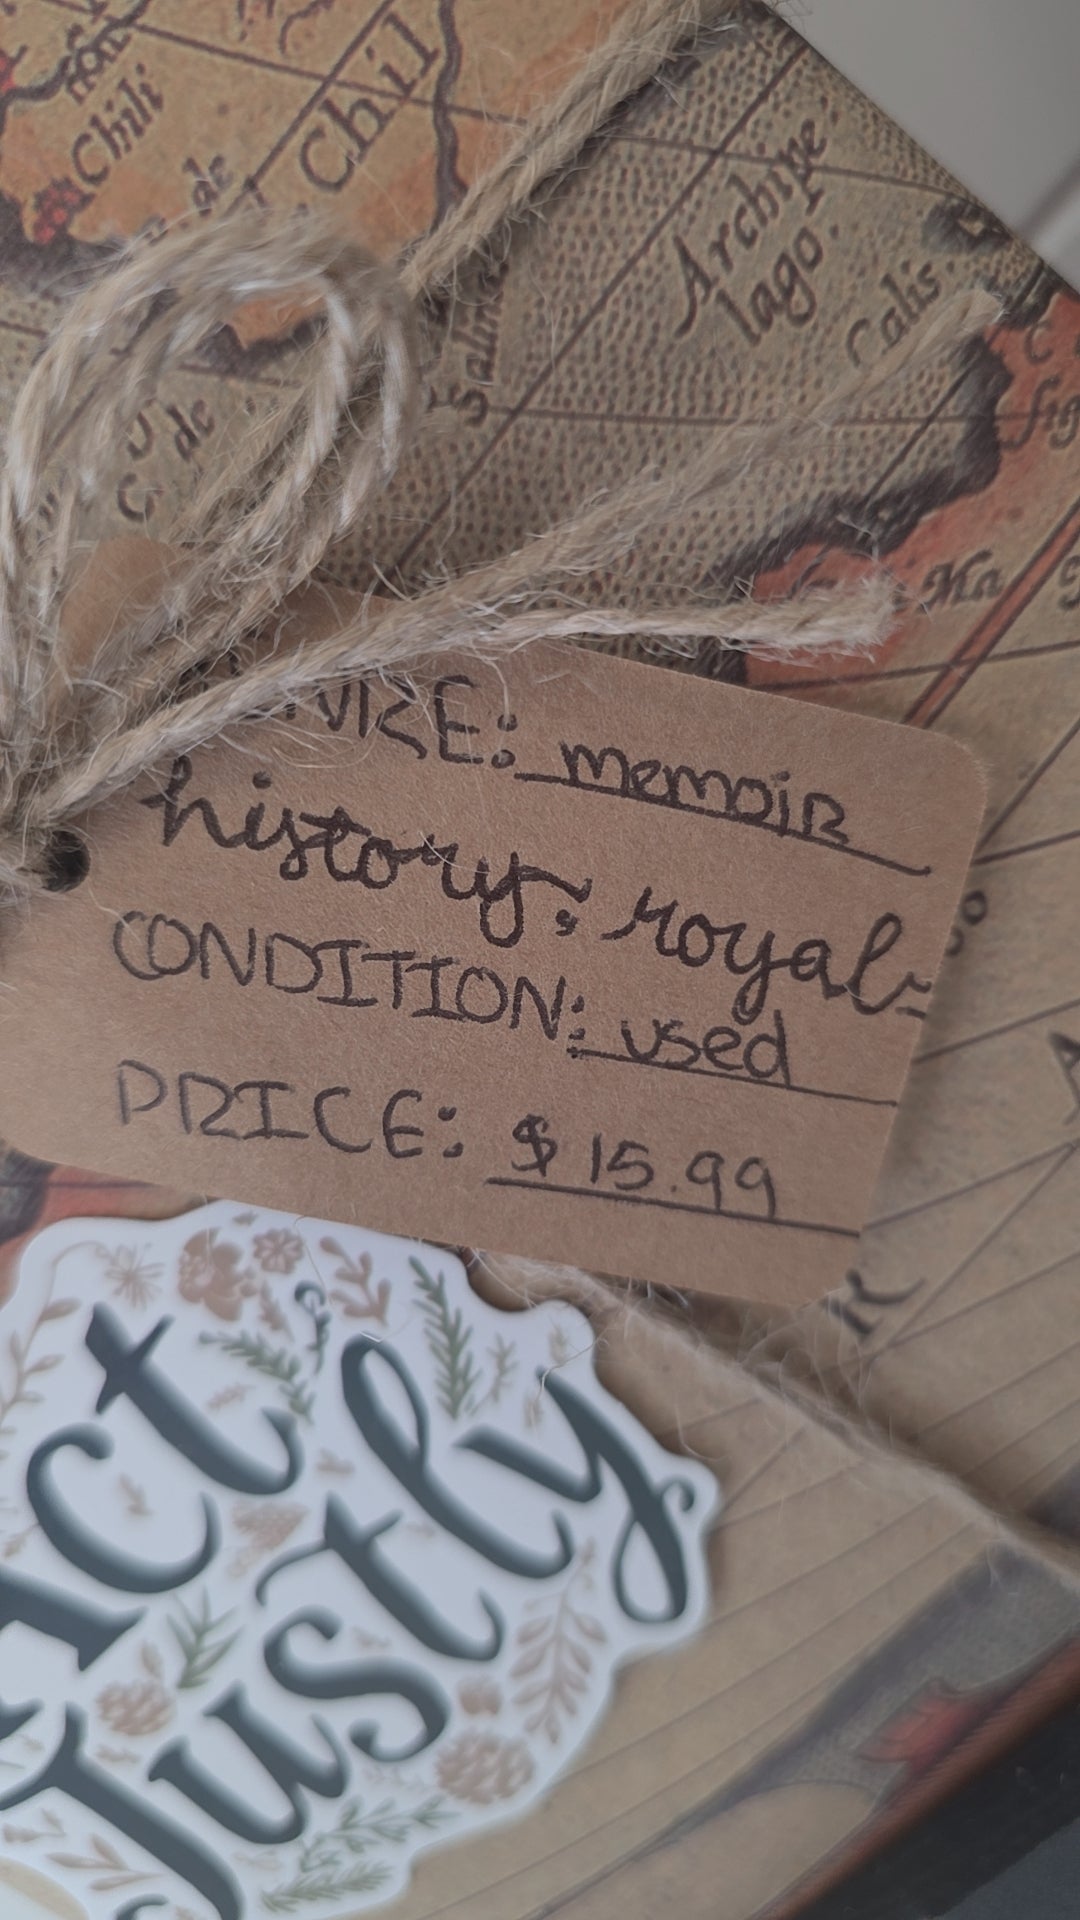 Chili
Chil
de
Archipe
lago.
Calis
Salin
de
C
Ma
memoir
history; royal-
CONDITION: used
PRICE: $15.99
Act
Justly